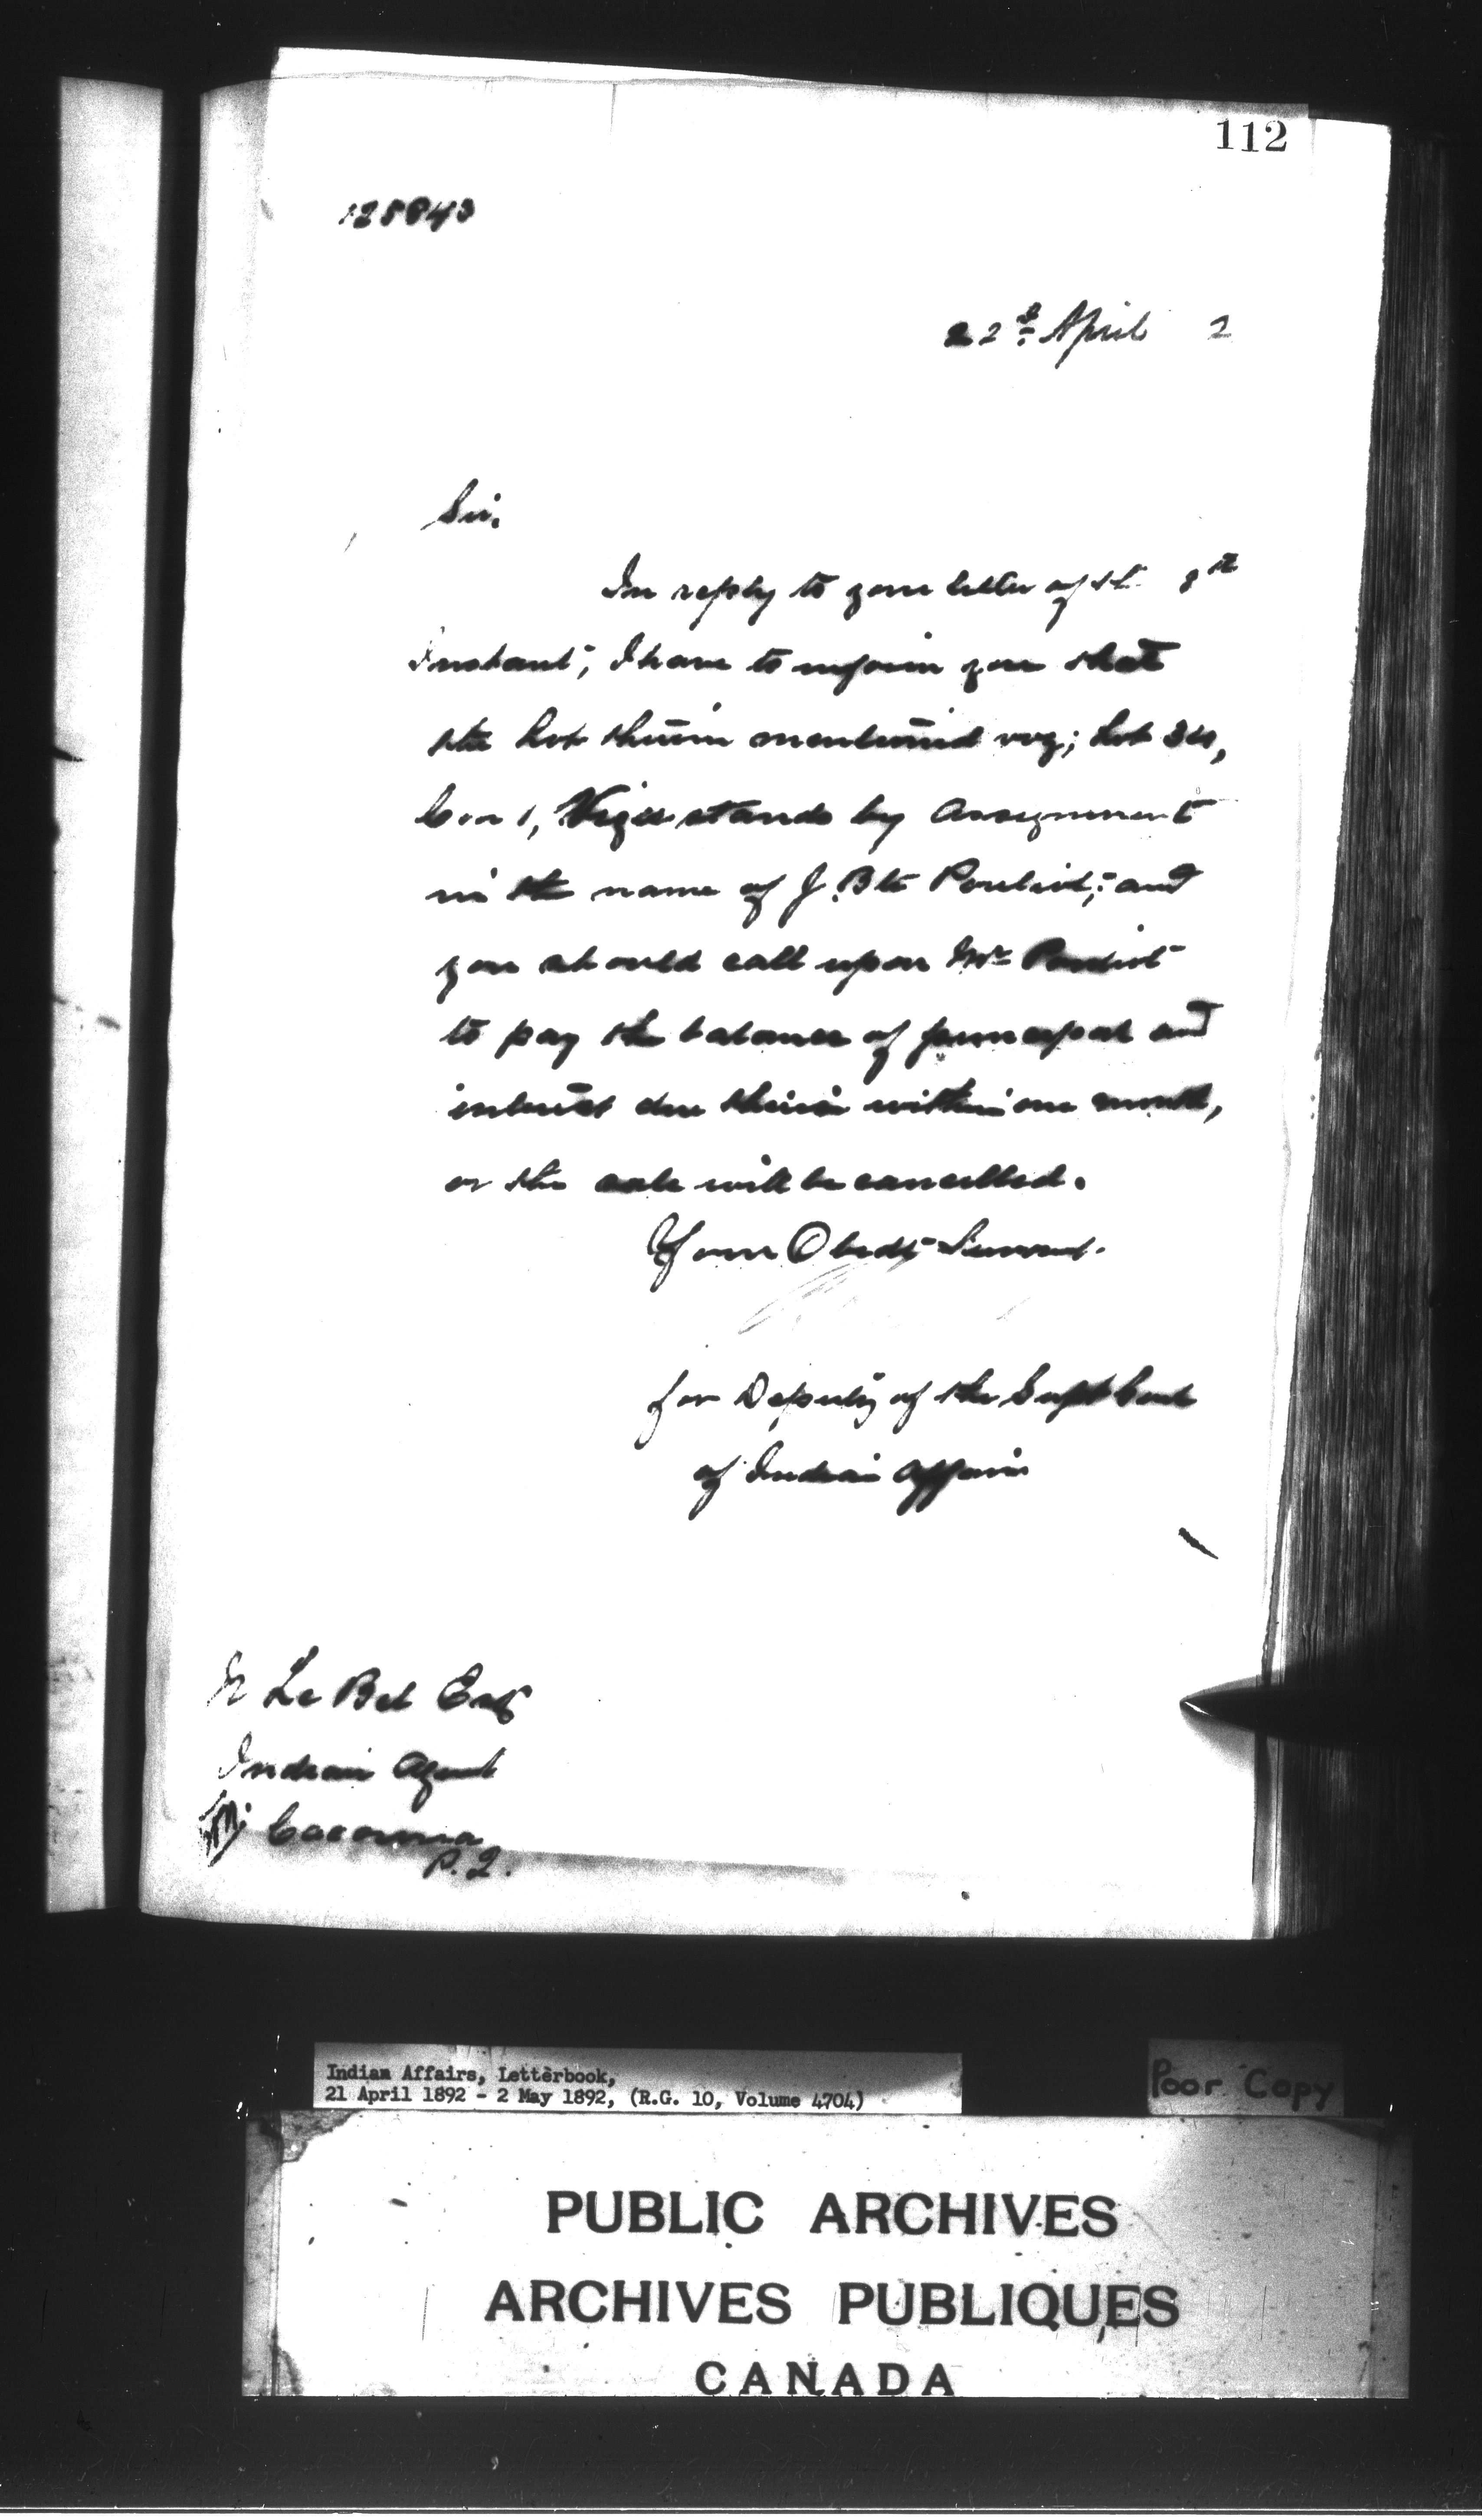 112
125843
22d April 2
Sir,
In reply to your letter of the 8th
Instant, I have to inform you that
the Lot therein mentioned viz; Lot 34,
Con 1, Viger stands by Assignment
in the name of J. Bte Pouliot; and
you should call upon Mr Pouliot
to pay the balance of principal and
interest due thereon within one month,
or the sale will be cancelled.
Your Obedt Servant.
for Deputy of the Supt Genl
of Indian Affairs
Le Bel Esq
Indian Agent
Cacouna
P.Q.
Indian Affairs, Letterbook,
21 April 1892 - 2 May 1892, (R.G. 10, Volume 4704)
Poor Copy
PUBLIC ARCHIVES
ARCHIVES PUBLIQUES
CANADA